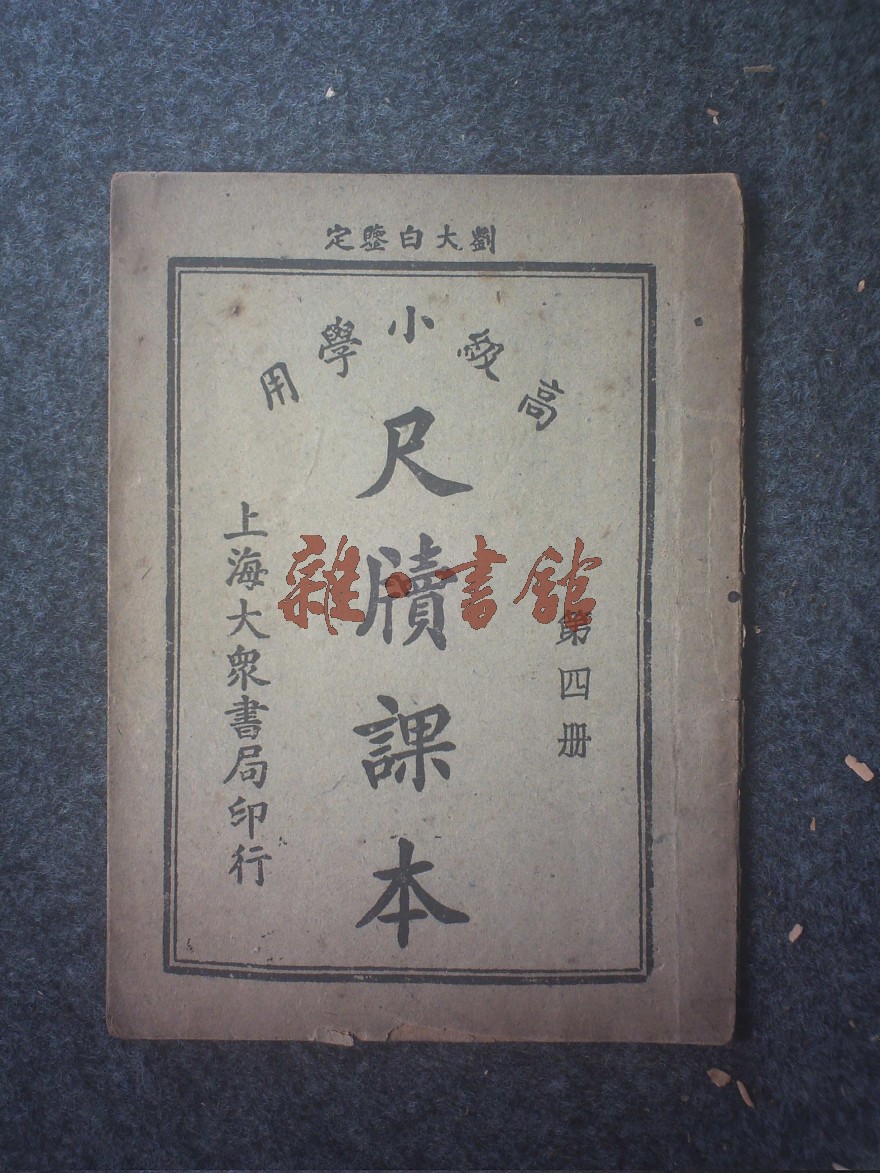 劉大白鑒定
高級小學用
尺牘課本
第四册
上海大衆書局印行
雜·書館